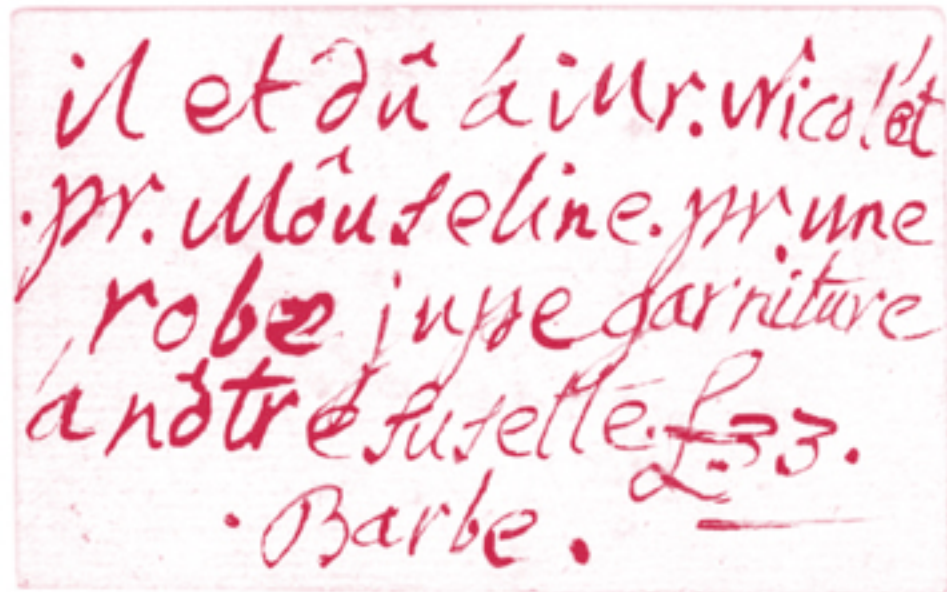 il et dû á Mr. Nicolet
.pr. Môuseline. pr. une
robe jupe garniture
á nôtre susette. £33.
. Barbe.